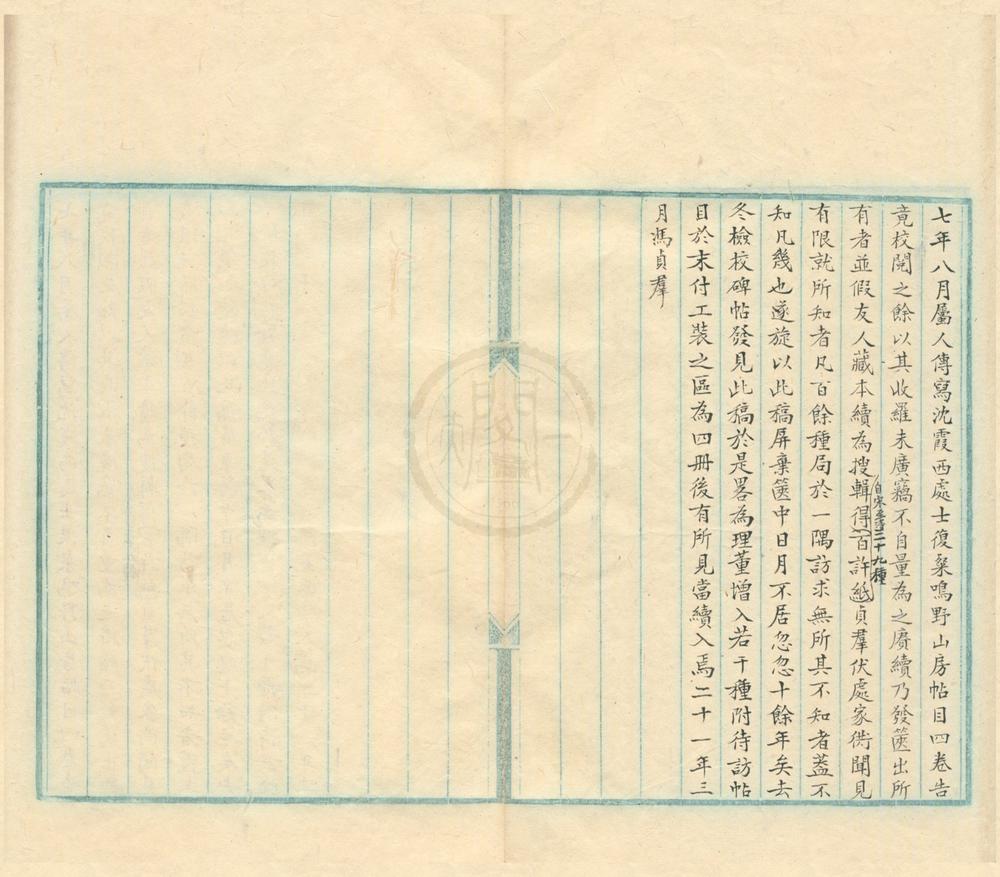 七年八月屬人傳寫沈霞西處士復粲鳴野山房帖目四卷告
竟校閱之餘以其收羅未廣竊不自量為之賡續乃發篋出所
有者並假友人藏本續為搜輯得百許紙貞羣伏處家衖聞見
自宋至清三十九種
有限就所知者凡百餘種局於一隅訪求無所其不知者蓋不
知凡幾也遂旋以此稿屏棄篋中日月不居忽忽十餘年矣去
冬檢校碑帖發見此稿於是畧為理董增入若干種附待訪帖
目於末付工裝之區為四冊後有所見當續入焉二十一年三
月馮貞羣